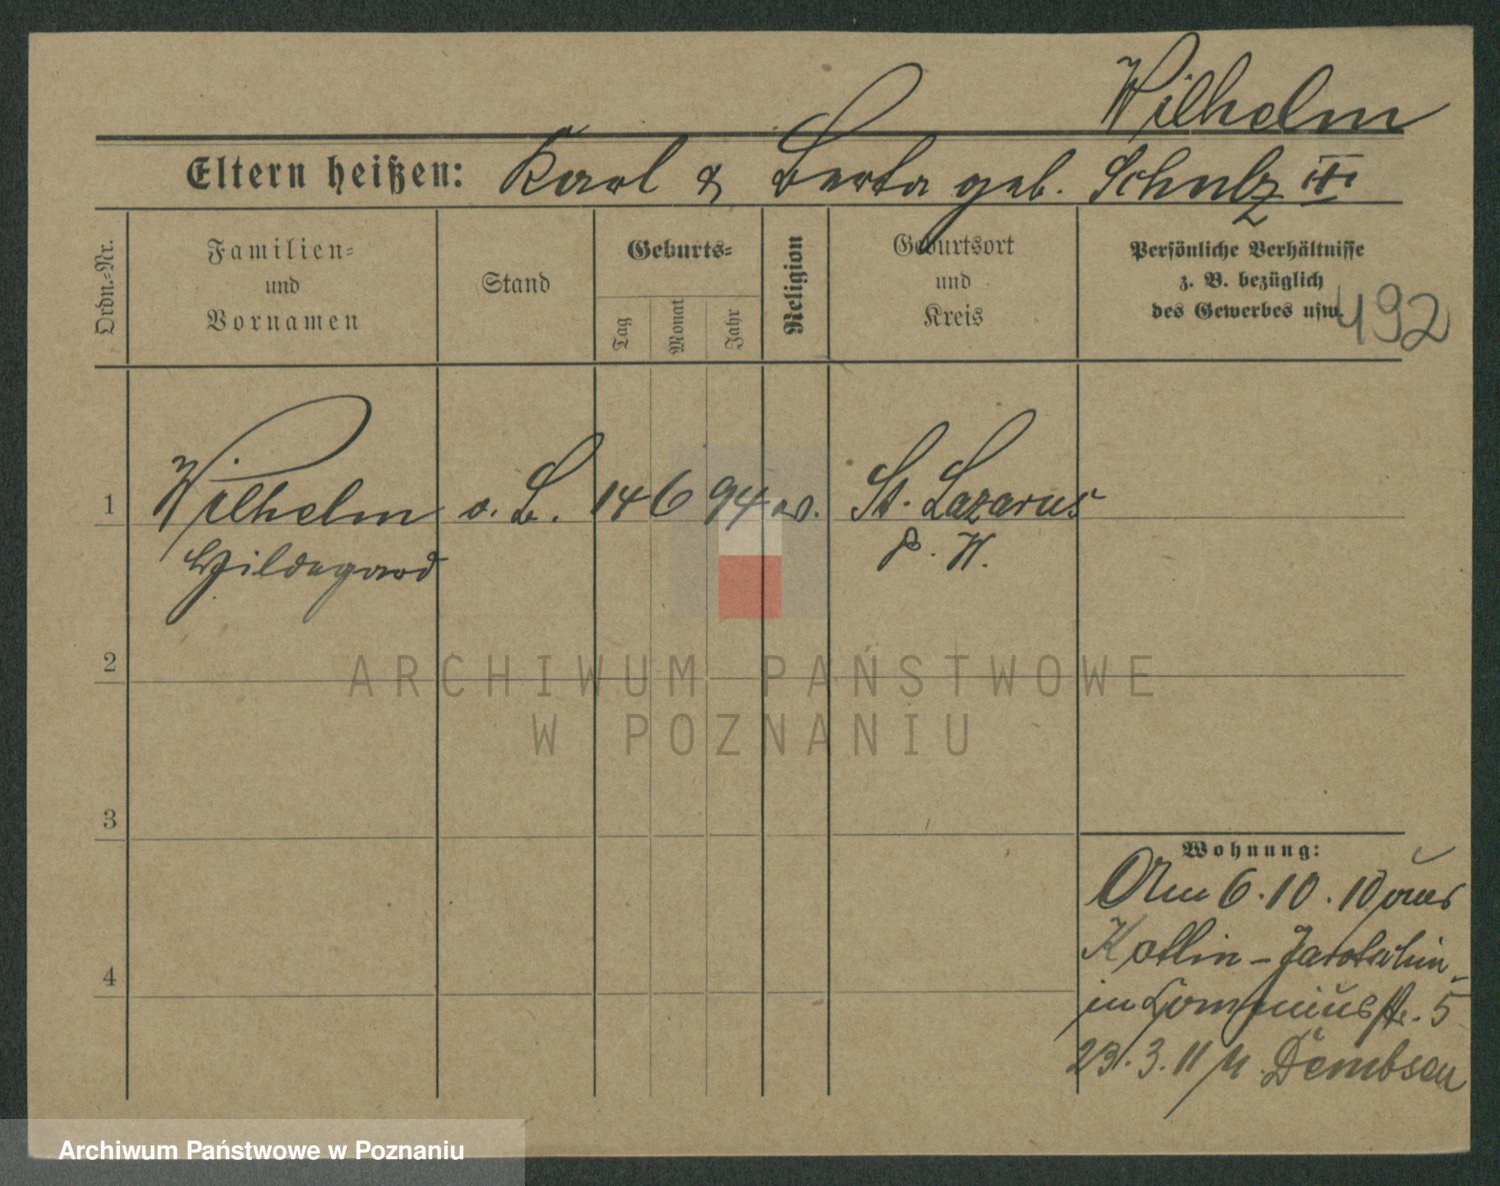 Wilhelm
Eltern heißen: Karl & Berta geb. Schulz III
Ordn.-Nr.
Familien- und Vornamen
Stand
Geburts-
Tag
Monat
Jahr
Religion
Geburtsort und Kreis
Persönliche Verhältnisse
z. B. bezüglich
des Gewerbes usw.
492
1 Wilhelm o. B. 14 6 94 ev. St. Lazarus
Hildegard P. W.
2
3
4
Wohnung:
Am 6.10.10 aus
Kotlin - Jarotschin
in Comeniusstr. 5
23.3.11 n. Dembsen
ARCHIWUM PAŃSTWOWE
W POZNANIU
Archiwum Państwowe w Poznaniu